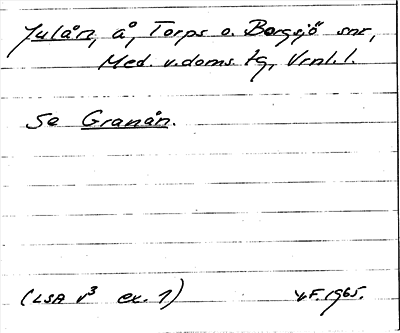 Julån, å, Torps o. Borgsjö snr,
Med. v.doms. tg, Vrnl.l.
Se Granån.
(LSA v³ ex. 1) F. 1965.